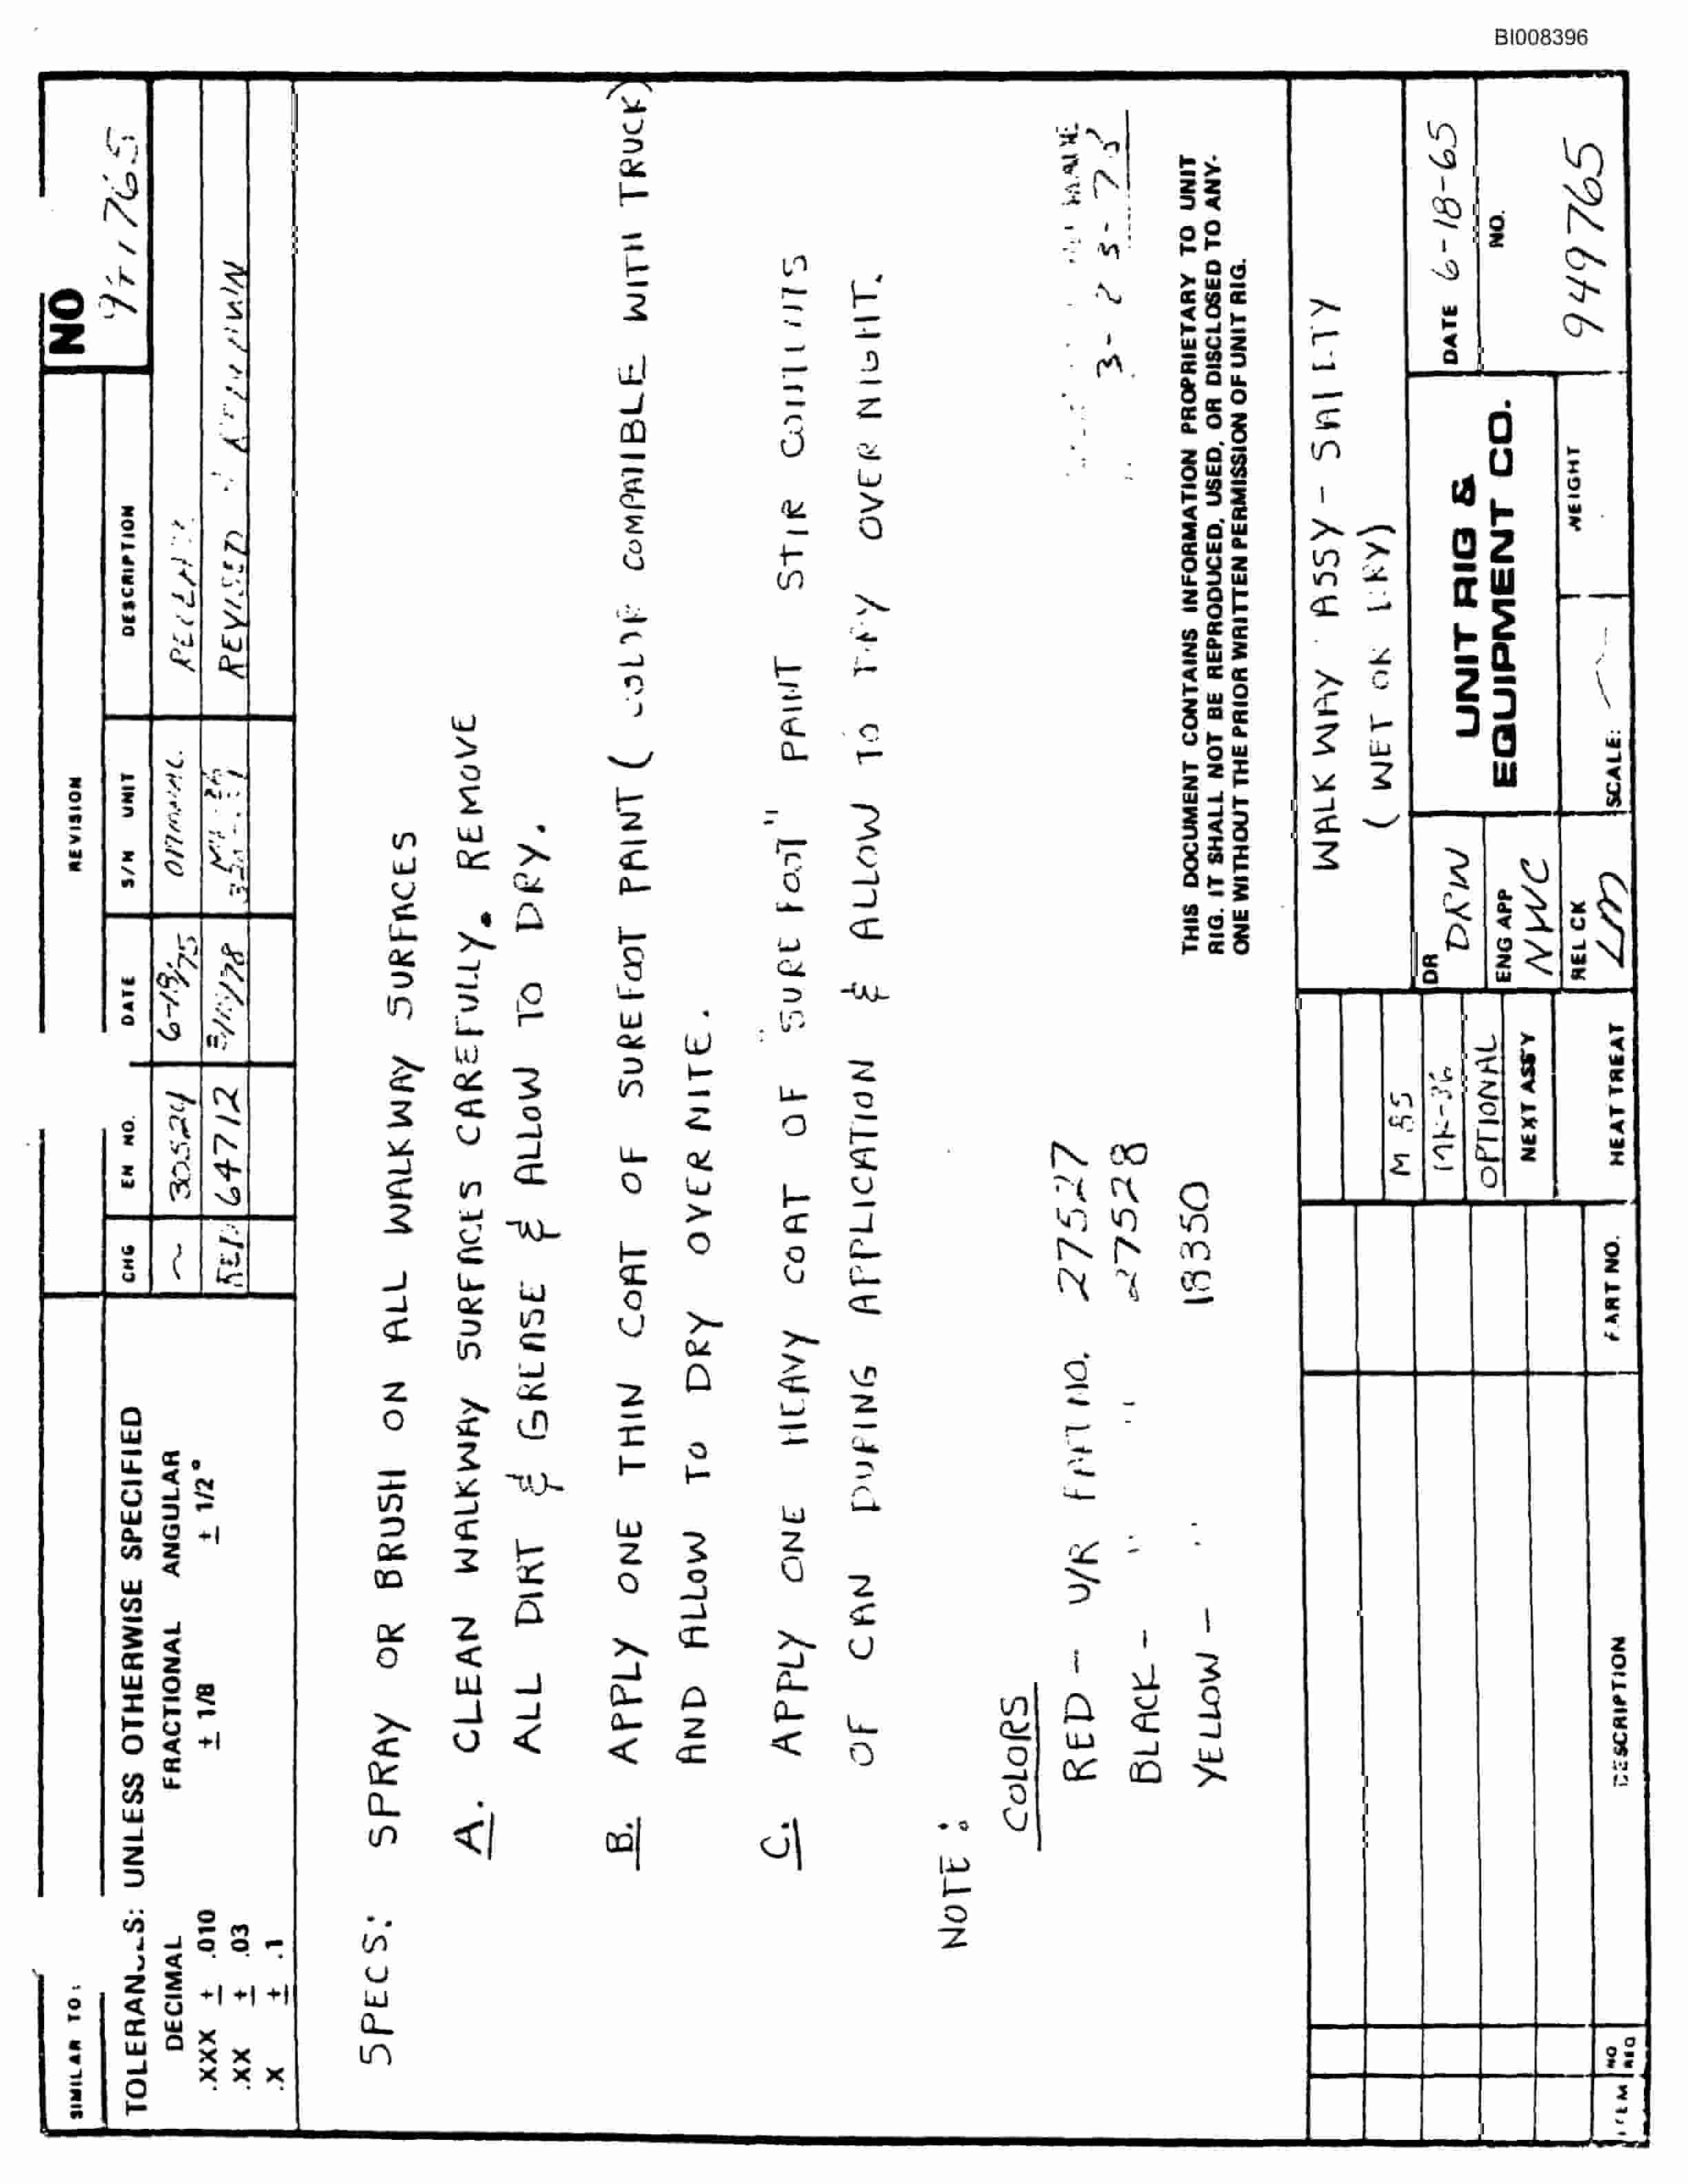 BI008396
SIMILAR TO:
REVISION
NO
TOLERANCES: UNLESS OTHERWISE SPECIFIED
DECIMAL FRACTIONAL ANGULAR
.XXX ± .010 ± 1/8 ± 1/2°
.XX ± .03
.X ± .1
CHG EN NO. DATE S/N UNIT DESCRIPTION
~ 30524 6-19/75
64712 REVISED
SPECS: SPRAY OR BRUSH ON ALL WALKWAY SURFACES
A. CLEAN WALKWAY SURFACES CAREFULLY. REMOVE
ALL DIRT & GREASE & ALLOW TO DRY.
B. APPLY ONE THIN COAT OF SUREFOOT PAINT (COLOR COMPATIBLE WITH TRUCK)
AND ALLOW TO DRY OVERNITE.
C. APPLY ONE HEAVY COAT OF "SUREFOOT" PAINT STIR CONTENTS
OF CAN DURING APPLICATION & ALLOW TO DRY OVERNIGHT.
NOTE:
COLORS
RED - U/R PART NO. 27527
BLACK - " " 27528
YELLOW - " 18350
3-23-75
THIS DOCUMENT CONTAINS INFORMATION PROPRIETARY TO UNIT
RIG. IT SHALL NOT BE REPRODUCED, USED, OR DISCLOSED TO ANY-
ONE WITHOUT THE PRIOR WRITTEN PERMISSION OF UNIT RIG.
WALKWAY ASSY - SAFETY
(WET OR DRY)
M 85
MK-36
OPTIONAL
NEXT ASSY
HEAT TREAT
DR DRW
ENG APP NWC
REL CK LM
UNIT RIG &
EQUIPMENT CO.
SCALE: ~
WEIGHT
DATE 6-18-65
NO.
949765
ITEM NO REQ DESCRIPTION PART NO.